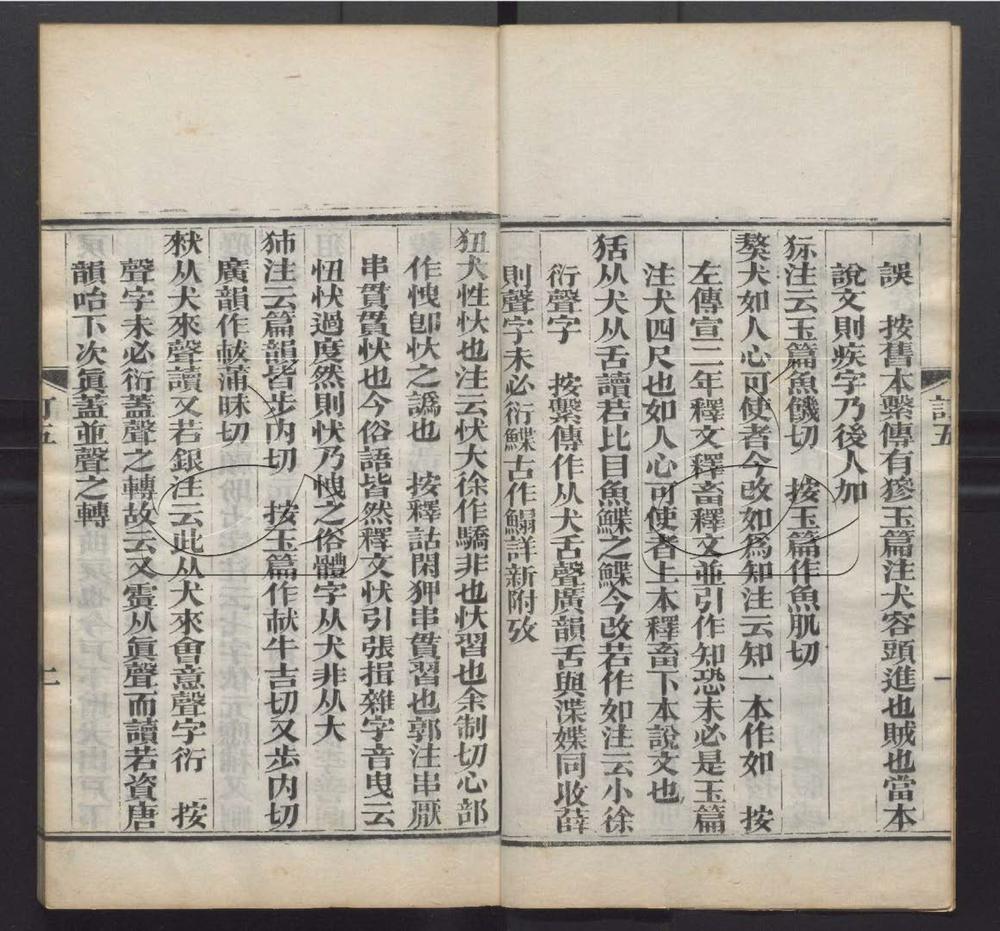 誤　按舊本繫傳有獫玉篇注犬容頭進也賊也當本
說文則疾字乃後人加
狋注云玉篇魚饑切　按玉篇作魚肌切
獒犬如人心可使者今改如爲知注云知一本作如　按
左傳宣二年釋文釋畜釋文並引作知恐未必是玉篇
注犬四尺也如人心可使者上本釋畜下本說文也
狧从犬从舌讀若比目魚鰈之鰈今改若作如注云小徐
衍聲字　按繫傳作从犬舌聲廣韻舌與渫媟同收薛
則聲字未必衍鰈古作鰨詳新附攷
狃犬性忕也注云忕大徐作驕非也忕習也余制切心部
作愧卽忕之譌也　按釋詁閑狎串貫習也郭注串厭
串貫貫忕也今俗語皆然釋文忕引張揖雜字音曳云
忸忕過度然則忕乃愧之俗體字从犬非从大
㹃注云篇韻皆步內切　按玉篇作㹃牛吉切又步內切
廣韻作㹃蒲昧切
猌从犬來聲讀又若銀注云此从犬來會意聲字衍　按
聲字未必衍蓋聲之轉故云又䨲从眞聲而讀若資唐
韻咍下次眞蓋並聲之轉
訂五